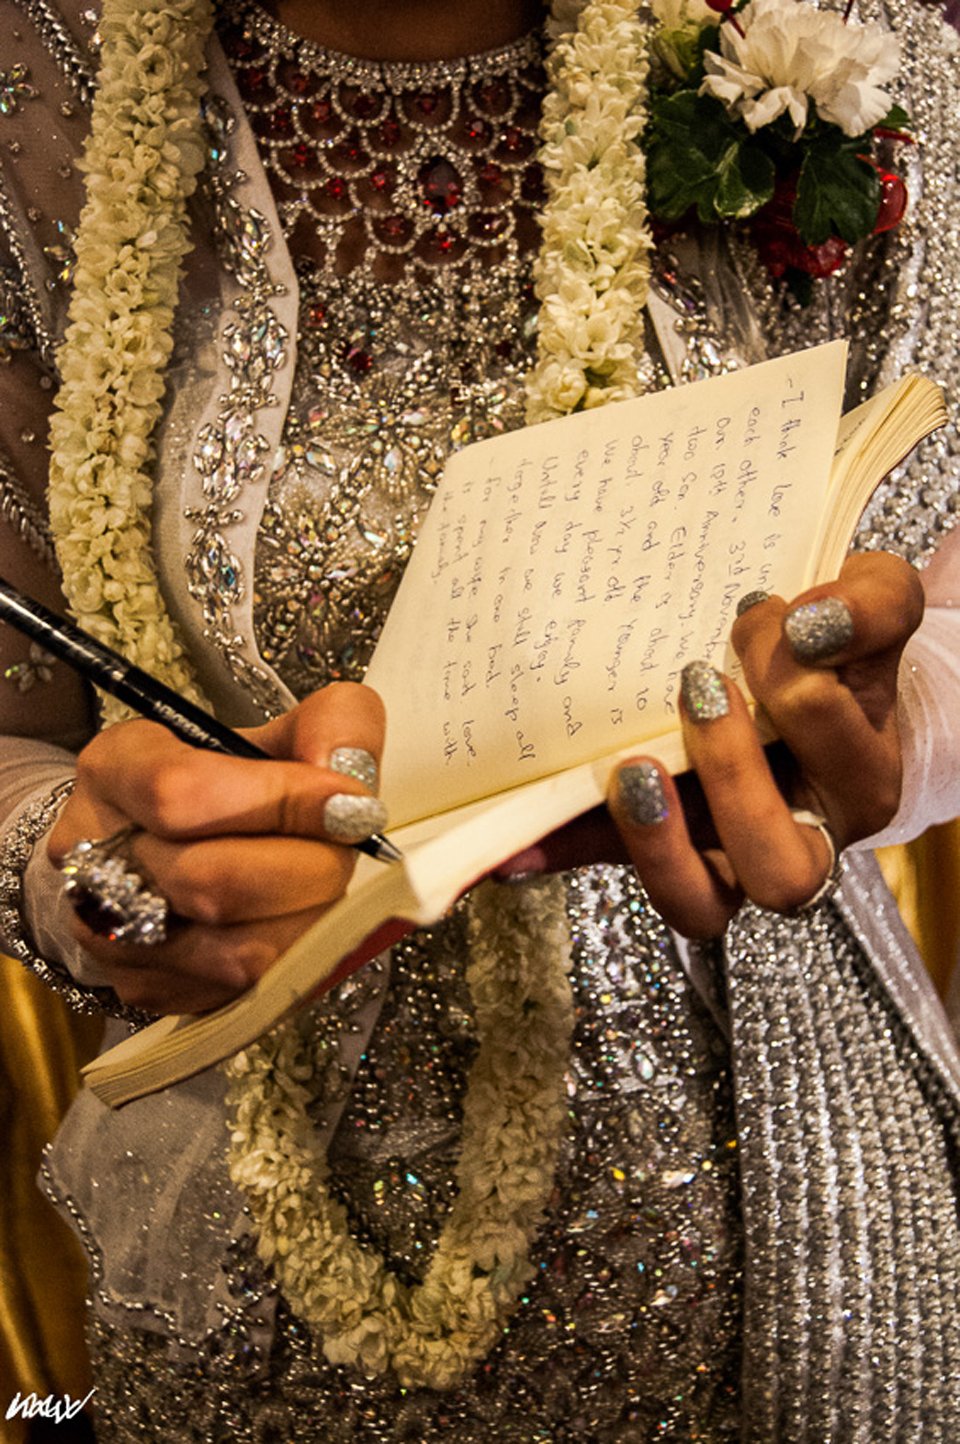 - I think love is
each other. 3rd
Our 10th Anniversary. We have
two son. Elder is about 10
year old and the younger is
about 3½ yr old.
We have pleasant family and
every day we enjoy.
Until now we still sleep all
together in one bed.
- For my wife She said, love.
is spent all the time with
the family.